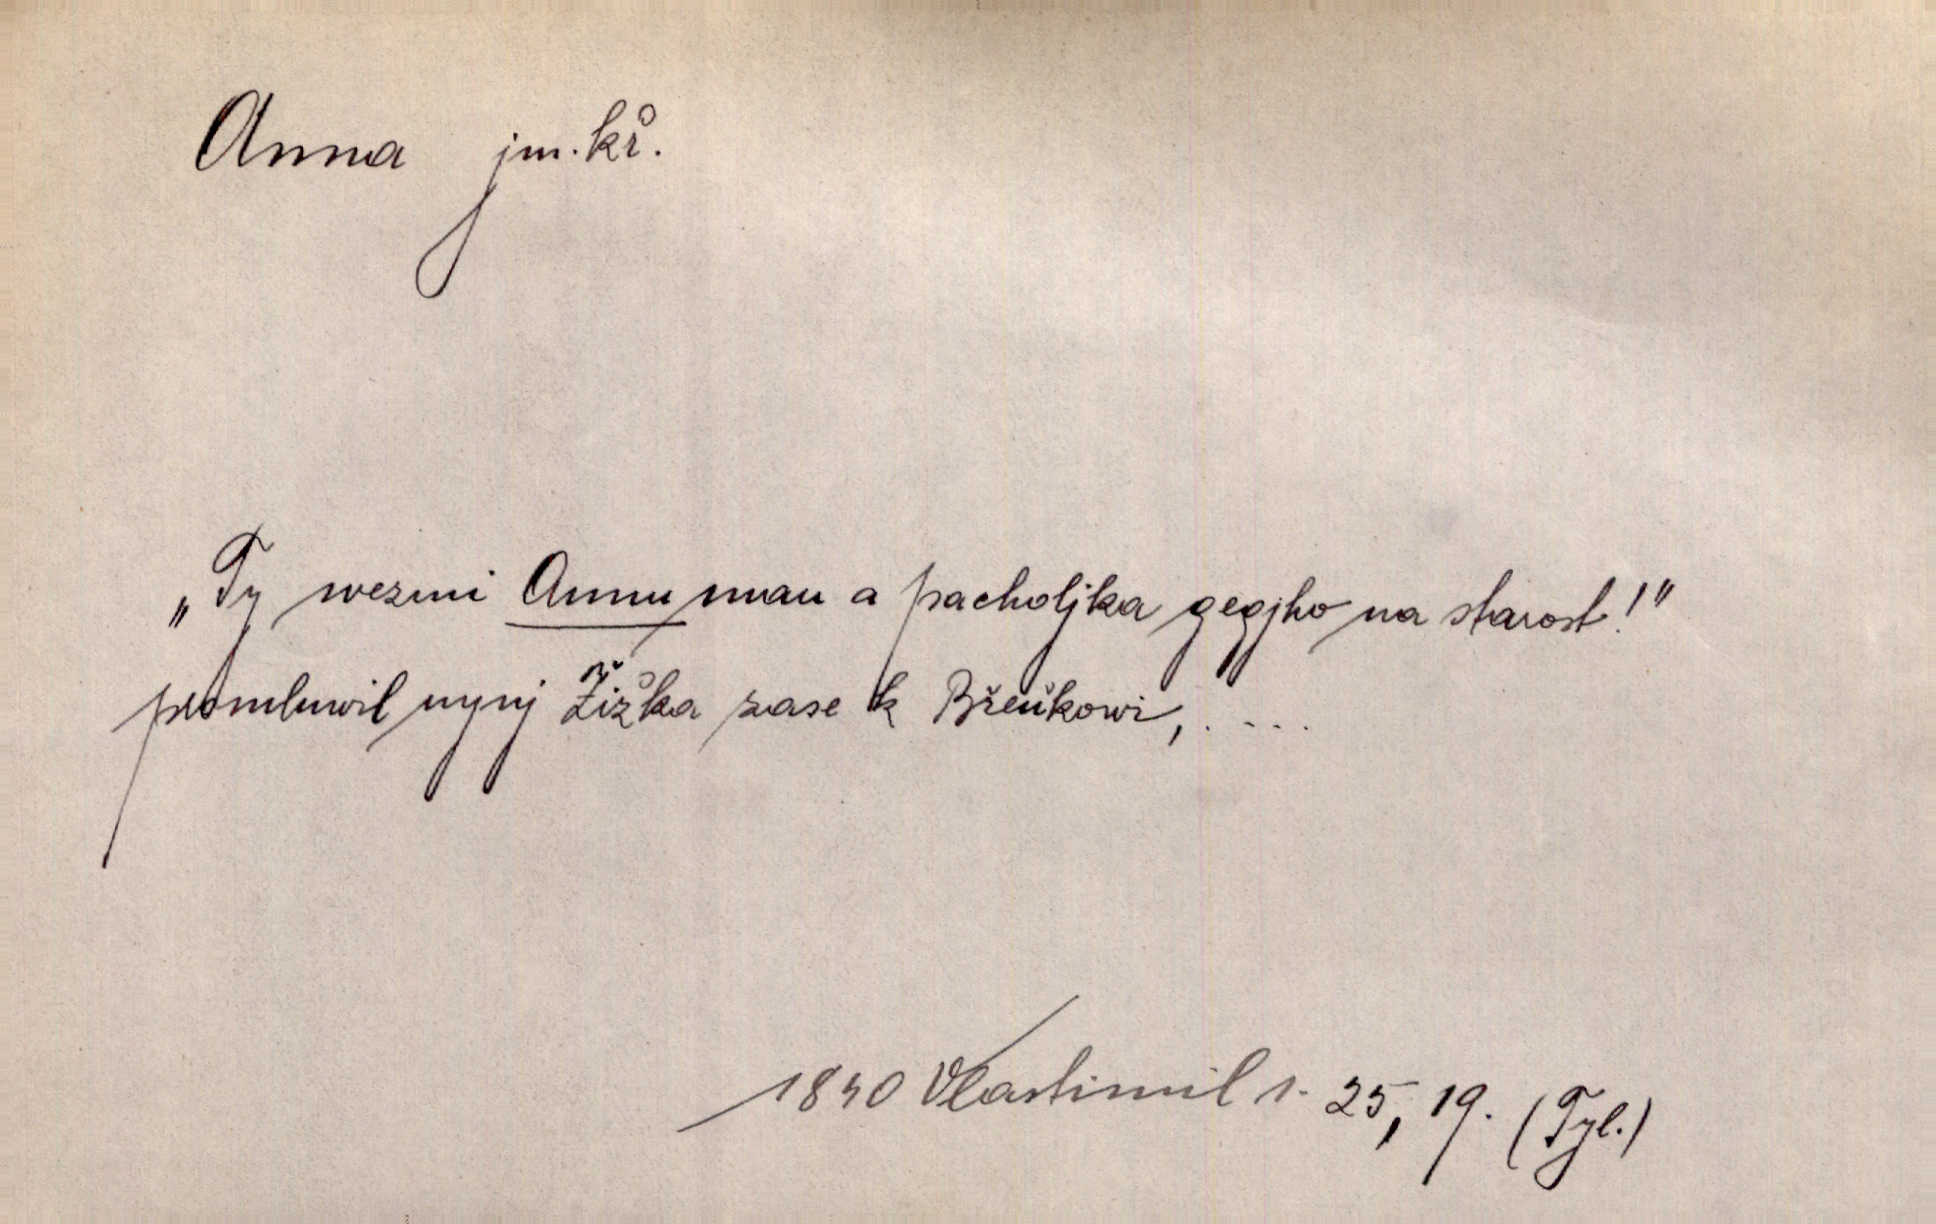 Anna jm. kř.
„Ty wezmi Annu mau a pacholjka gegjho na starost!"
promluwil nynj Žižka zase k Břeňkowi, . - . .
1840 Vlastimil 1. 25, 19. (Tyl.)